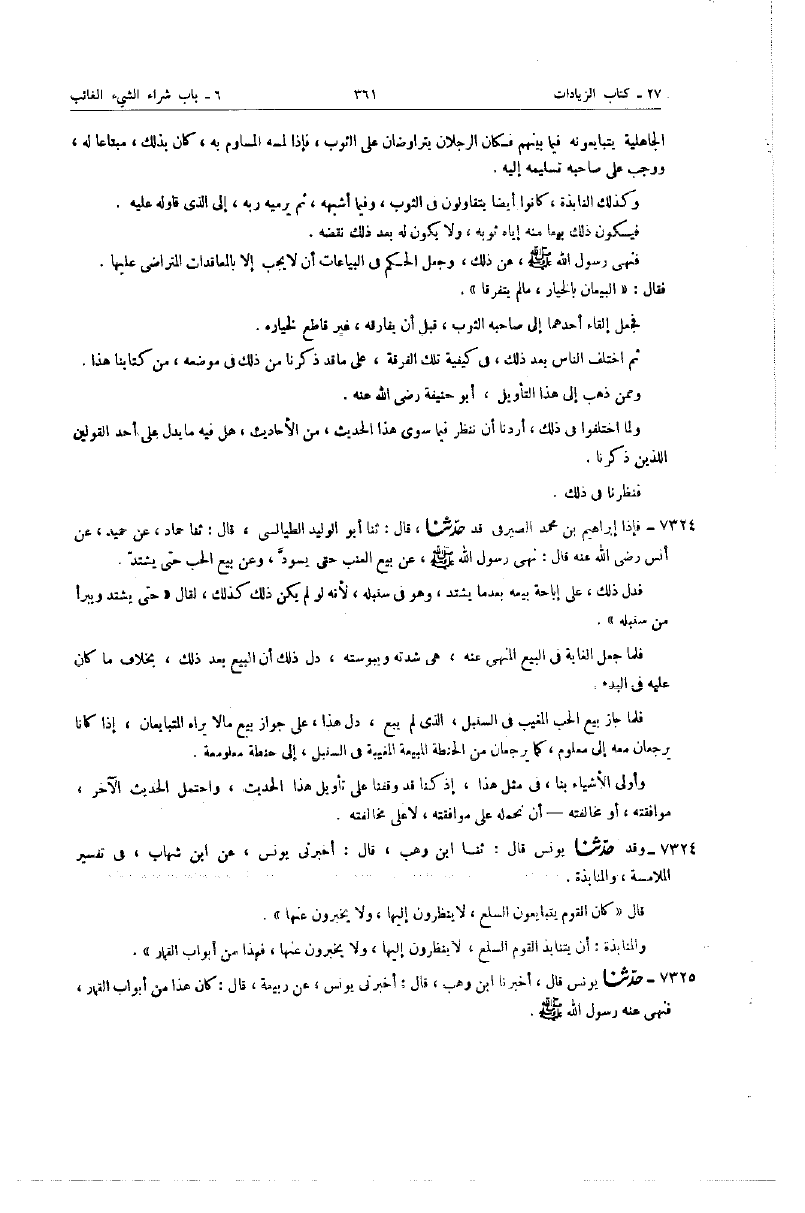 ٢٧ - كتاب الزيادات ٣٦١ ٦ - باب شراء الشيء الغائب
الجاهلية يتبايعونه فيما بينهم فكان الرجلان يتراوضان على الثوب ، فإذا لمسه المساوم به ، كان بذلك ، مبتاعا له ،
ووجب على صاحبه تسليمه إليه .
وكذلك المنابذة ، كانوا أيضا يتقاولون فى الثوب ، وفيما أشبهه ، ثم يرميه ربه ، إلى الذى قاوله عليه .
فيكون ذلك بيعا منه إياه ثوبه ، ولا يكون له بعد ذلك نقضه .
فنهى رسول الله ﷺ ، عن ذلك ، وجعل الحكم فى البياعات أن لايجب إلا بالمعاقدات المتراضى عليها .
فقال : « البيعان بالخيار ، مالم يتفرقا » .
فجعل إلقاء أحدهما إلى صاحبه الثوب ، قبل أن يفارقه ، غير قاطع لخياره .
ثم اختلف الناس بعد ذلك ، فى كيفية تلك الفرقة ، على ماقد ذكرنا من ذلك فى موضعه ، من كتابنا هذا .
وممن ذهب إلى هذا التأويل ، أبو حنيفة رضى الله عنه .
ولما اختلفوا فى ذلك ، أردنا أن ننظر فيما سوى هذا الحديث ، من الأحاديث ، هل فيه مايدل على أحد القولين
اللذين ذكرنا .
فنظرنا فى ذلك .
٧٣٢٤ - فإذا إبراهيم بن محمد الصيرفى قد حدّثنا ، قال : ثنا أبو الوليد الطيالسى ، قال : ثنا حماد ، عن حميد ، عن
أنس رضى الله عنه قال : نهى رسول الله ﷺ ، عن بيع العنب حتى يسودّ ، وعن بيع الحب حتى يشتدّ .
فدل ذلك ، على إباحة بيعه بعدما يشتد ، وهو فى سنبله ، لأنه لو لم يكن ذلك كذلك ، لقال « حتى يشتد ويبرأ
من سنبله » .
فلما جعل الغاية فى البيع المنهى عنه ، هى شدته ويبوسته ، دل ذلك أن البيع بعد ذلك ، بخلاف ما كان
عليه فى البدء .
فلما جاز بيع الحب المغيب فى السنبل ، الذى لم يبع ، دل هذا ، على جواز بيع مالا يراه المتبايعان ، إذا كانا
يرجعان معه إلى معلوم ، كما يرجعان من الحنطة المبيعة المغيبة فى السنبل ، إلى حنطة معلومة .
وأولى الأشياء بنا ، فى مثل هذا ، إذ كنا قد وقفنا على تأويل هذا الحديث ، واحتمل الحديث الآخر ،
موافقته ، أو مخالفته — أن نحمله على موافقته ، لاعلى مخالفته .
٧٣٢٤ - وقد حدّثنا يونس قال : ثنا ابن وهب ، قال : أخبرنى يونس ، عن ابن شهاب ، فى تفسير
الملامسة ، والمنابذة .
قال « كان القوم يتبايعون السلع ، لاينظرون إليها ، ولا يخبرون عنها » .
والمنابذة : أن يتنابذ القوم السلع ، لاينظرون إليها ، ولا يخبرون عنها ، فهذا من أبواب القمار » .
٧٣٢٥ - حدّثنا يونس قال ، أخبرنا ابن وهب ، قال : أخبرنى يونس ، عن ربيعة ، قال : كان هذا من أبواب القمار ،
فنهى عنه رسول الله ﷺ .